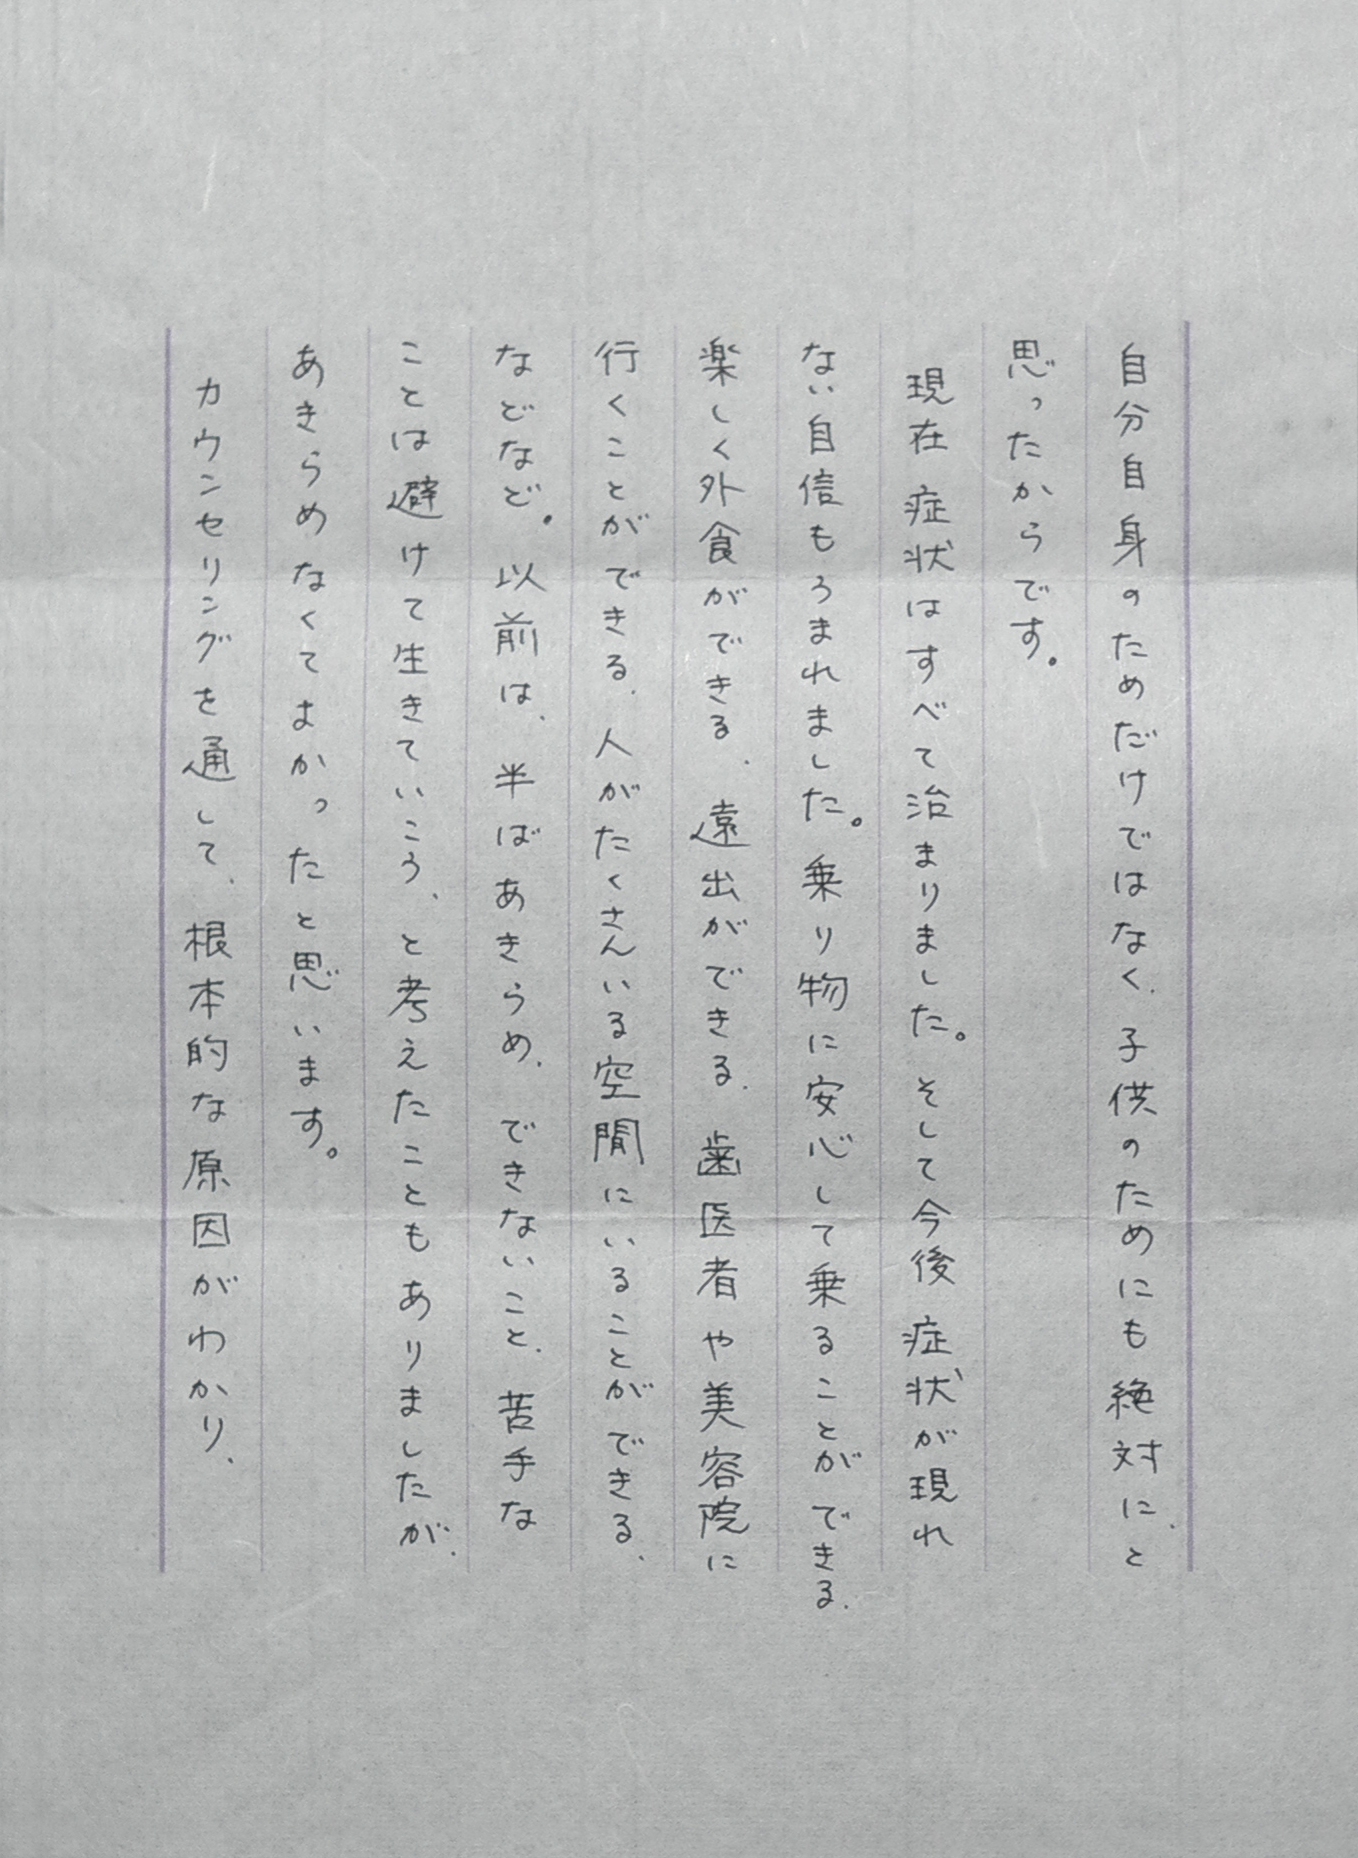 自分自身のためだけではなく、子供のためにも絶対に、と
思ったからです。
現在症状はすべて治まりました。そして今後症状が現れ
ない自信もうまれました。乗り物に安心して乗ることができる、
楽しく外食ができる、遠出ができる、歯医者や美容院に
行くことができる、人がたくさんいる空間にいることができる、
などなど。以前は、半ばあきらめ、できないこと、苦手な
ことは避けて生きていこう、と考えたこともありましたが、
あきらめなくてよかったと思います。
カウンセリングを通して、根本的な原因がわかり、